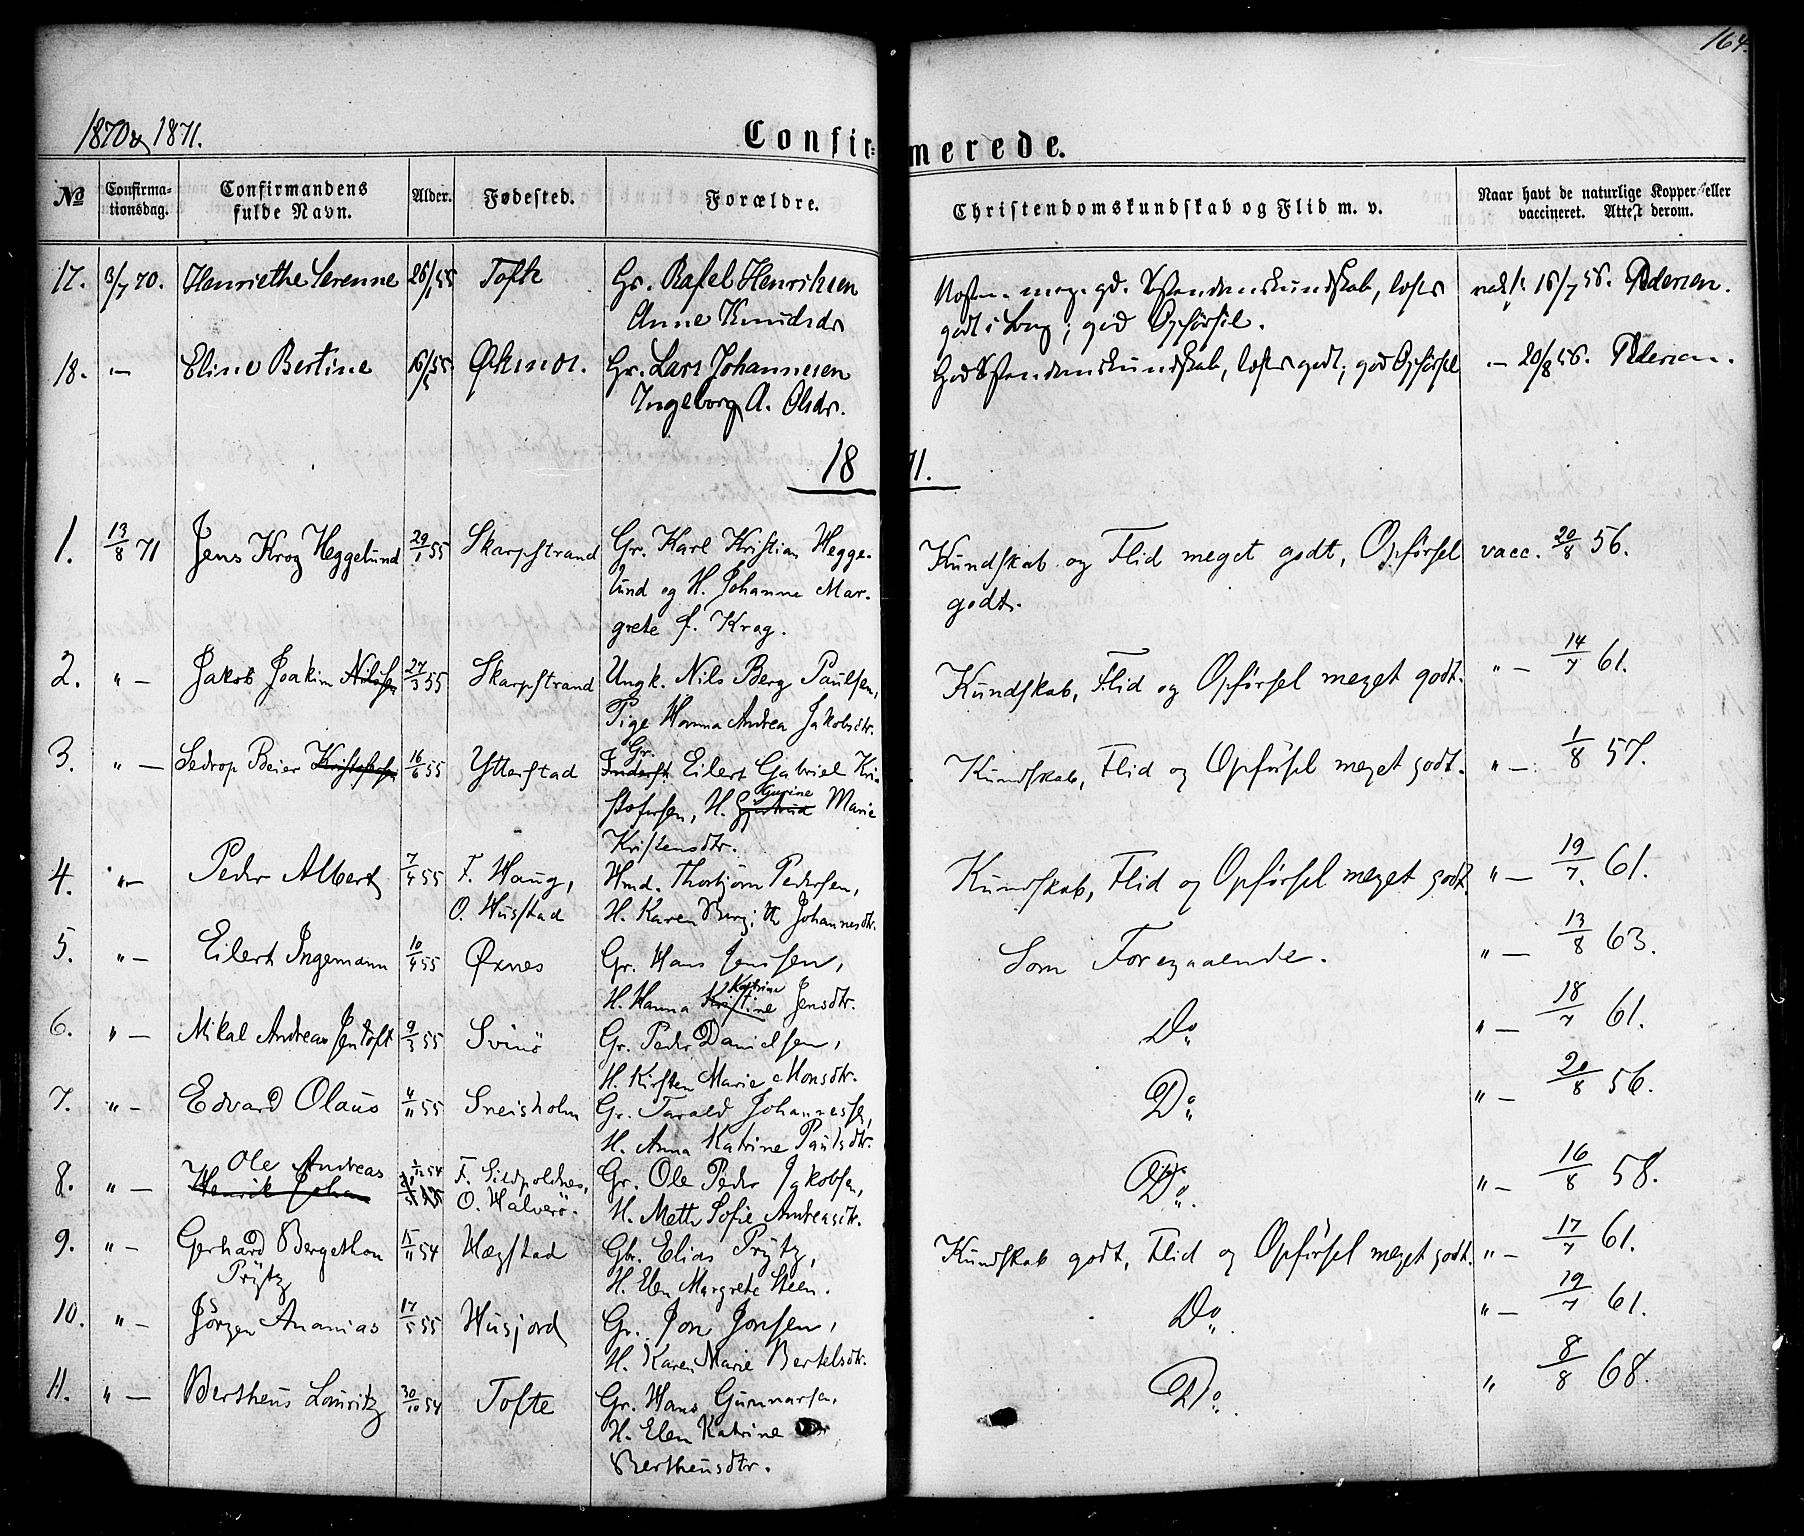 164.
1870 & 1871.
Confirmerede.
No
Confirmationsdag.
Confirmandens fulde Navn.
Alder.
Fødested.
Forældre.
Christendomskundskab og Flid m. v.
Naar havt de naturlige Kopper eller vaccineret. Attest derom.
17. 3/7 70. Henriethe Serenne 26/1 55 Tofte Gr. Rafel Henriksen
Anne Knudsdr
godt i Bog; god Opførsel. 16/7 56. Pedersen.
18. — Eline Bertine 16/5 55 Gr. Lars Johannesen
Ingeborg A. Olsdr.
God Forstandenskundskab, læser godt; god Opførsel — 20/8 56. Pedersen.
1871.
1. 13/8 71 Jens Krog Heggelund 29/1 55 Skarpstrand Gr. Karl Kristian Hegge-
lund og H. Johanne Mar-
grete f. Krog.
Kundskab og Flid meget godt, Opførsel
godt.
vacc. 20/8 56.
2. " — Jakob Joakim Nilssen 27/3 55 Skarpstrand Ungk. Nils Berg Paulsen,
Pige Hanna Andrea Jakobsdtr.
Kundskab, Flid og Opførsel meget godt. " — 14/7 61.
3. " — Sedrop Beier Kristofersen 16/6 55 Ytterstad Gr.
Inderst Eilert Gabriel Kri-
stofersen, H. Gjertrud Gurine Marie
Kristensdtr.
Kundskab, Flid og Opførsel meget godt. " — 1/8 57.
4. " — Peder Albert 7/4 55 F. Haug,
O. Husstad
Hmd. Thorbjörn Pedersen,
H. Karen Johannesdtr.
Kundskab, Flid og Opførsel meget godt " — 19/7 61.
5. " — Eilert Ingemann 10/4 55 Øxnes Gr. Hans Jenssen,
H. Hanna Kristine Katrine Jensdtr.
Som Foregaaende. " — 13/8 63.
6. " — Mikal Andreas Jentoft 9/3 55 Svinö Gr. Peder Danielsen,
H. Kirsten Marie Monsdtr.
Do " — 18/7 61.
7. " — Edvard Olaus 4/11 55 Sneisholm Gr. Tarald Johannessen,
H. Anna Katrine Paulsdtr.
Do " — 20/8 56.
8. " — Ole Andreas
Henrik Johan
1/12 54
F. Sildpoldnes,
O. Halverö.
Gr. Ole Peder Jakobsen,
H. Mette Sofie Andreasdtr.
Do " — 16/8 58.
9. " — Gerhard Bergethon
Prÿtz
15/11 54 Hægstad Gbr. Elias Prÿtz,
H. Elen Margrete Steen.
Kundskab godt, Flid og Opførsel meget godt. " — 17/7 61.
10. " — Jörgen Ananias 17/5 55 Husjord Gr. Jon Jonsen,
H. Karen Marie Bertelsdtr.
Do " — 19/7 61.
11. " — Bertheus Lauritz 30/10 54 Tofte Gr. Hans Gunnarsen,
H. Elen Katrine
Bertheusdtr.
Do " 8/8 68.